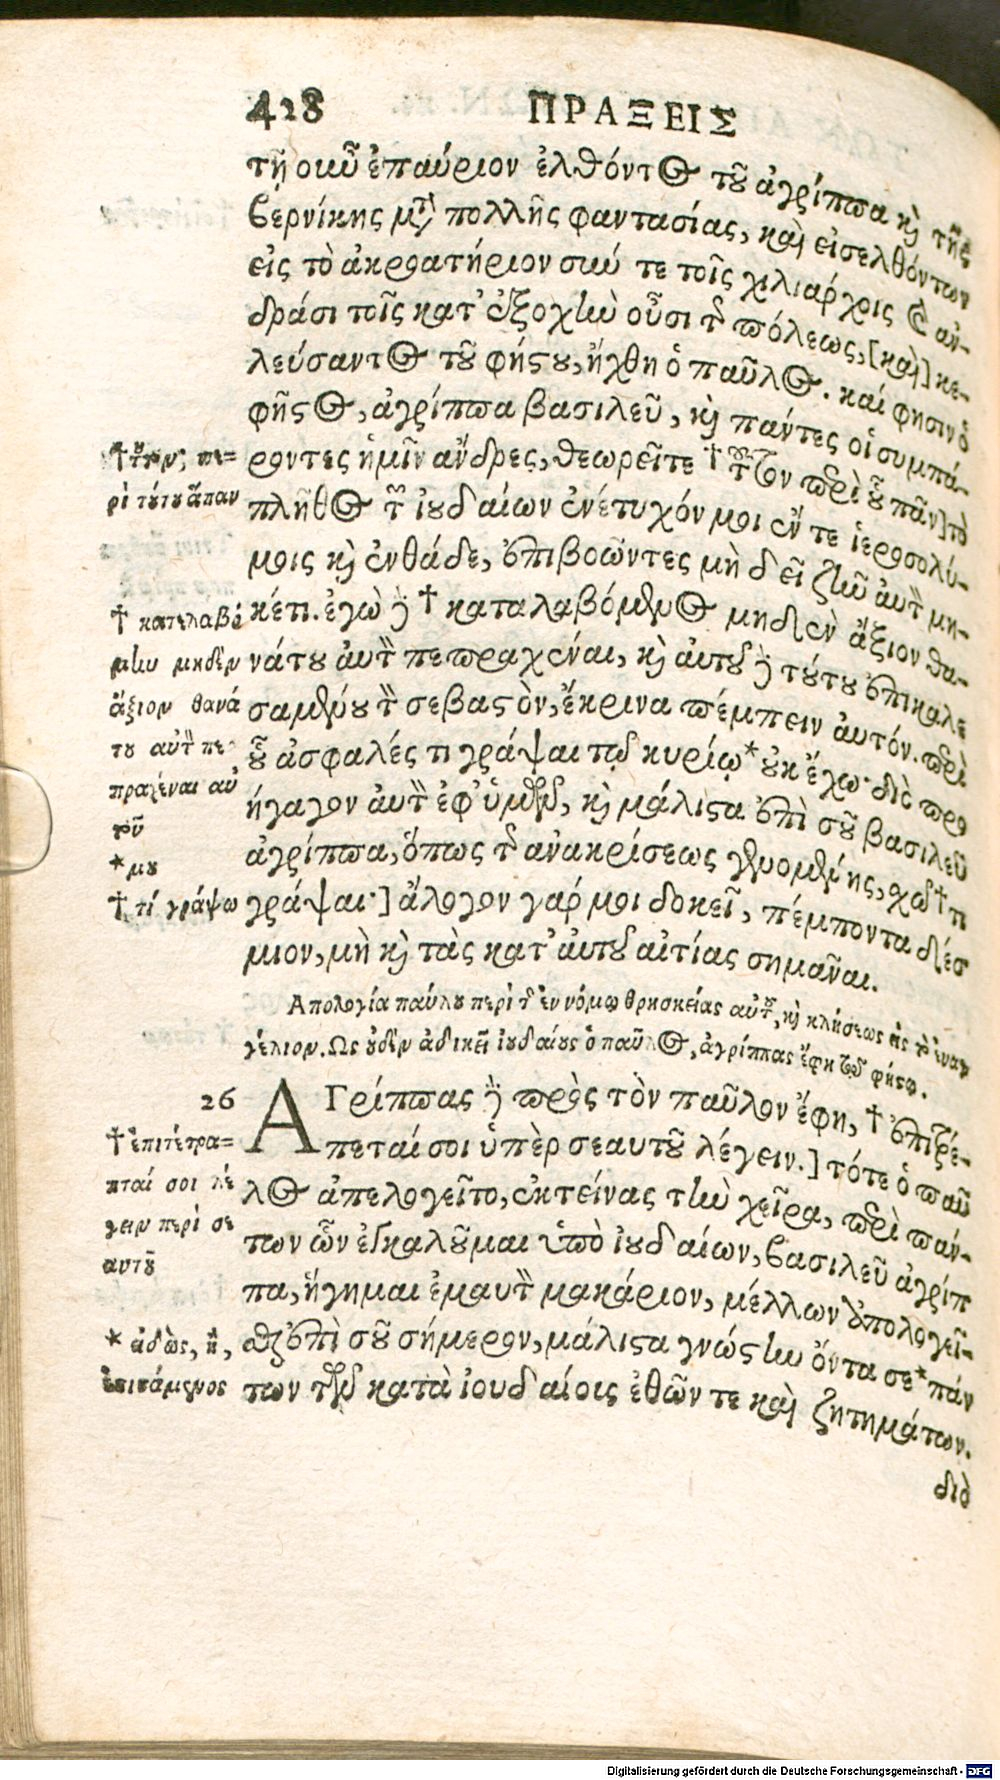 428 ΠΡΑΞΕΙΣ
τῇ οὖν ἐπαύριον ἐλθόντος τοῦ ἀγρίππα καὶ τῆς
βερνίκης μετὰ πολλῆς φαντασίας, καὶ εἰσελθόντων
εἰς τὸ ἀκροατήριον σύν τε τοῖς χιλιάρχοις καὶ ἀν-
δράσι τοῖς κατ' ἐξοχὴν οὖσι τῆς πόλεως, [καὶ] κε-
λεύσαντος τοῦ φήστου, ἤχθη ὁ παῦλος. καί φησιν ὁ
φῆστος, ἀγρίππα βασιλεῦ, καὶ πάντες οἱ συμπά-
ροντες ἡμῖν ἄνδρες, θεωρεῖτε † τοῦτον περὶ οὗ πᾶν] τὸ
πλῆθος τῶν ἰουδαίων ἐνέτυχόν μοι ἔν τε ἱεροσολύ-
μοις καὶ ἐνθάδε, ἐπιβοῶντες μὴ δεῖ ζῆν αὐτὸν μη-
κέτι. ἐγὼ δὲ † καταλαβόμενος μηδὲν ἄξιον θα-
νάτου αὐτὸν πεπραχέναι, καὶ αὐτοῦ δὲ τούτου ἐπικαλε
σαμένου τὸν σεβαστὸν, ἔκρινα πέμπειν αὐτόν. περὶ
οὗ ἀσφαλές τι γράψαι τῷ κυρίῳ * οὐκ ἔχω· διὸ προ
ήγαγον αὐτὸν ἐφ' ὑμῶν, καὶ μάλιστα ἐπὶ σοῦ βασιλεῦ
ἀγρίππα, ὅπως τῆς ἀνακρίσεως γενομένης, σχῶ † τι
γράψαι·] ἄλογον γάρ μοι δοκεῖ, πέμποντα δέσ
μιον, μὴ καὶ τὰς κατ' αὐτοῦ αἰτίας σημᾶναι.
† πε-
ρὶ τούτου ἅπαν
† κατελαβό
μην μηδὲν
ἄξιον θανά
του αὐτὸν πε
πραχέναι αὐ
τοῦ
* μου
† τί γράψω
Απολογία παύλου περὶ τῆς ἐν νόμῳ θρησκείας αὐτοῦ, καὶ κλήσεως εἰς τὸ εὐαγ
γέλιον. Ως οὐδὲν ἀδικεῖ ἰουδαίους ὁ παῦλος, ἀγρίππας ἔφη τῷ φήστῳ.
26 ΑΓρίππας δὲ πρὸς τὸν παῦλον ἔφη, † ἐπιτρέ-
πεταί σοι ὑπὲρ σεαυτοῦ λέγειν.] τότε ὁ παῦ
λος ἀπελογεῖτο, ἐκτείνας τὴν χεῖρα, περὶ πάν-
των ὧν ἐγκαλοῦμαι ὑπὸ ἰουδαίων, βασιλεῦ ἀγρίπ
πα, ἥγημαι ἐμαυτὸν μακάριον, μέλλων ἀπολογεῖ-
σθαι ἐπὶ σοῦ σήμερον, μάλιστα γνώστην ὄντα σε * πάν
των τῶν κατὰ ἰουδαίοις ἐθῶν τε καὶ ζητημάτων.
† ἐπιτέτρα-
πταί σοι λέ
γειν περὶ σε
αυτοῦ
* εἰδὼς, ἢ,
ἐπιστάμενος
διὸ
Digitalisierung gefördert durch die Deutsche Forschungsgemeinschaft - DFG